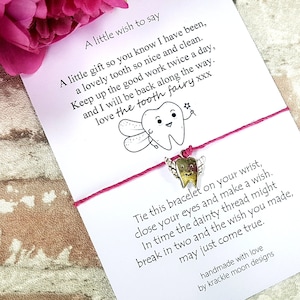 A little wish to say
A little gift so you know I have been,
a lovely tooth so nice and clean.
Keep up the good work twice a day,
and I will be back along the way.
love the tooth fairy xxx
Tie this bracelet on your wrist,
close your eyes and make a wish.
In time the dainty thread might
break in two and the wish you made,
may just come true.
handmade with love
by krackle moon designs